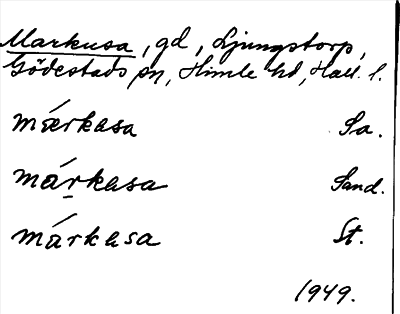 Markusa, gd, Ljungstorp,
Gödestads sn, Himle hd, Hall. l.
márkasa Sa.
márkasa Sand.
márkasa St.
1949.